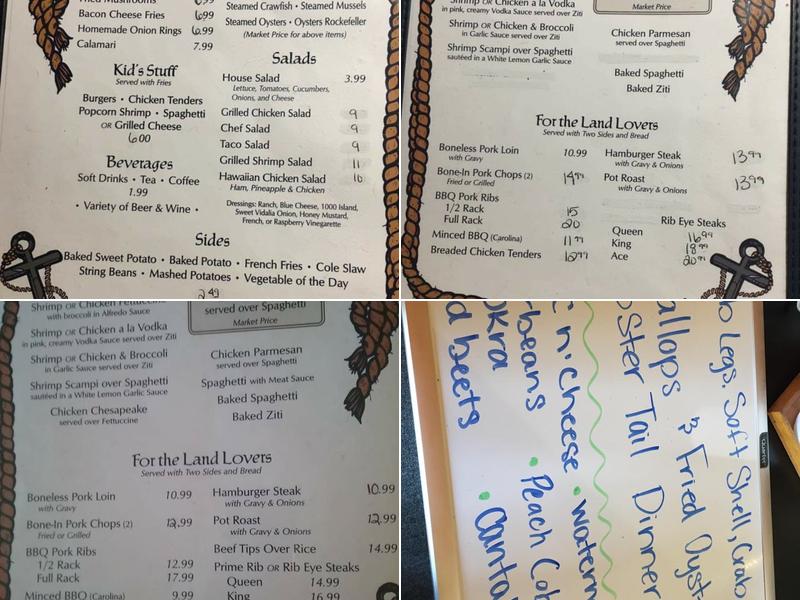 Bacon Cheese Fries 6.99
Homemade Onion Rings 6.99
Calamari 7.99
Kid's Stuff
Served with Fries
Burgers • Chicken Tenders
Popcorn Shrimp • Spaghetti
OR Grilled Cheese
6.00
Beverages
Soft Drinks • Tea • Coffee
1.99
• Variety of Beer & Wine •
Steamed Crawfish • Steamed Mussels
Steamed Oysters • Oysters Rockefeller
(Market Price for above items)
Salads
House Salad 3.99
Lettuce, Tomatoes, Cucumbers,
Onions, and Cheese
Grilled Chicken Salad 9
Chef Salad 9
Taco Salad 9
Grilled Shrimp Salad 11
Hawaiian Chicken Salad 10
Ham, Pineapple & Chicken
Dressings: Ranch, Blue Cheese, 1000 Island,
Sweet Vidalia Onion, Honey Mustard,
French, or Raspberry Vinegarette
Sides
Baked Sweet Potato • Baked Potato • French Fries • Cole Slaw
String Beans • Mashed Potatoes • Vegetable of the Day
2.49
Shrimp OR Chicken a la Vodka
in pink, creamy Vodka Sauce served over Ziti
Shrimp OR Chicken & Broccoli
in Garlic Sauce served over Ziti
Shrimp Scampi over Spaghetti
sautéed in a White Lemon Garlic Sauce
Market Price
Chicken Parmesan
served over Spaghetti
Baked Spaghetti
Baked Ziti
For the Land Lovers
Served with Two Sides and Bread
Boneless Pork Loin 10.99
with Gravy
Bone-In Pork Chops (2) 14.99
Fried or Grilled
BBQ Pork Ribs
1/2 Rack 15
Full Rack 20
Minced BBQ (Carolina) 11.99
Breaded Chicken Tenders
Hamburger Steak 13.99
with Gravy & Onions
Pot Roast 13.99
with Gravy & Onions
Rib Eye Steaks
Queen 16.99
King 18.99
Ace 20.99
Shrimp OR Chicken Fettuccine
with broccoli in Alfredo Sauce
Shrimp OR Chicken a la Vodka
in pink, creamy Vodka Sauce served over Ziti
Shrimp OR Chicken & Broccoli
in Garlic Sauce served over Ziti
Shrimp Scampi over Spaghetti
sautéed in a White Lemon Garlic Sauce
Chicken Chesapeake
served over Fettuccine
served over Spaghetti
Market Price
Chicken Parmesan
served over Spaghetti
Spaghetti with Meat Sauce
Baked Spaghetti
Baked Ziti
For the Land Lovers
Served with Two Sides and Bread
Boneless Pork Loin 10.99
with Gravy
Bone-In Pork Chops (2) 12.99
Fried or Grilled
BBQ Pork Ribs
1/2 Rack 12.99
Full Rack 17.99
Minced BBQ (Carolina) 9.99
Hamburger Steak 10.99
with Gravy & Onions
Pot Roast 12.99
with Gravy & Onions
Beef Tips Over Rice 14.99
Prime Rib OR Rib Eye Steaks
Queen 14.99
King 16.99
o Legs, Soft Shell, Crab
allops & Fried Oyst
ster Tail Dinner
n' cheese • waterm
beans • Peach Cob
Okra • Canta
d beets
Quartet